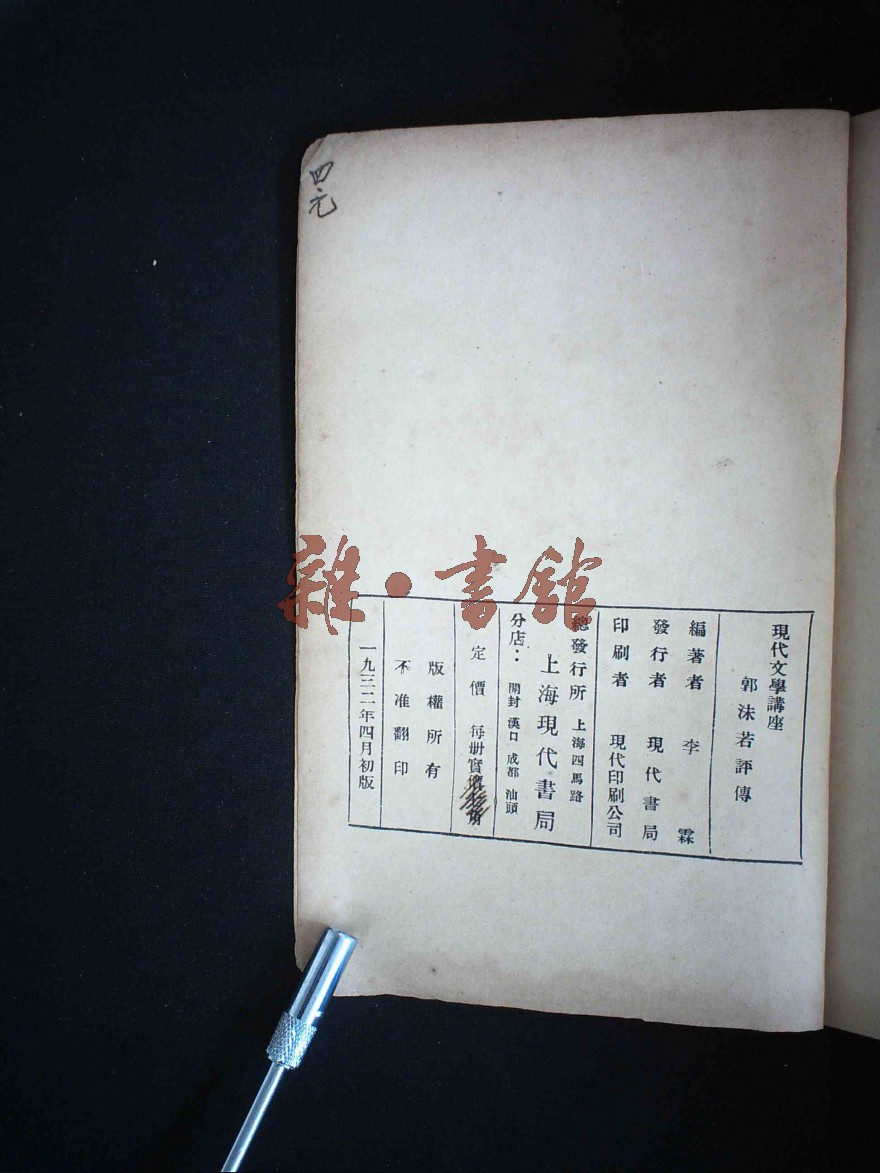 四元
雜·書館
現代文學講座
郭沫若評傳
編著者 李霖
發行者 現代書局
印刷者 現代印刷公司
總發行所 上海四馬路
上海現代書局
分店： 開封 漢口 成都 汕頭
定價 每册實價
版權所有
不准翻印
一九三二年四月初版